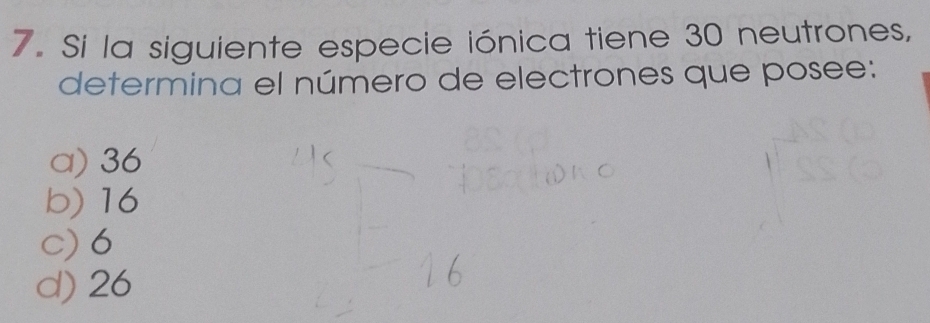 7. Si la siguiente especie iónica tiene 30 neutrones,
determina el número de electrones que posee:
a) 36
b) 16
c) 6
d) 26
16